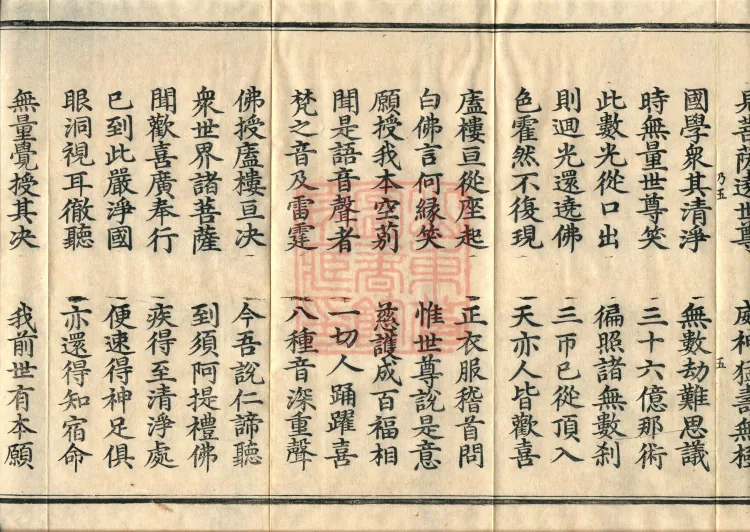 具菩薩遶世尊 威神猛壽無極
乃五 五
國學衆其清淨 無數劫難思議
時無量世尊笑 三十六億那術
此數光從口出 徧照諸無數刹
則迴光還遶佛 三帀已從頂入
色霍然不復現 天亦人皆歡喜
廅樓亘從座起 正衣服稽首問
白佛言何縁笑 惟世尊說是意
願授我本空莂 慈護成百福相
聞是語音聲者 一切人踊躍喜
梵之音及雷霆 八種音深重聲
佛授廅樓亘决 今吾說仁諦聽
衆世界諸菩薩 到須阿提禮佛
聞歡喜廣奉行 疾得至清淨處
已到此嚴淨國 便速得神足俱
眼洞視耳徹聽 亦還得知宿命
無量覺授其决 我前世有本願